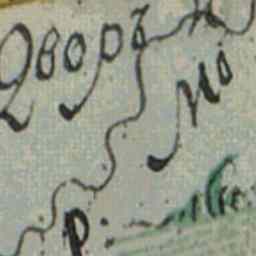 Дворъ
Мо
р.